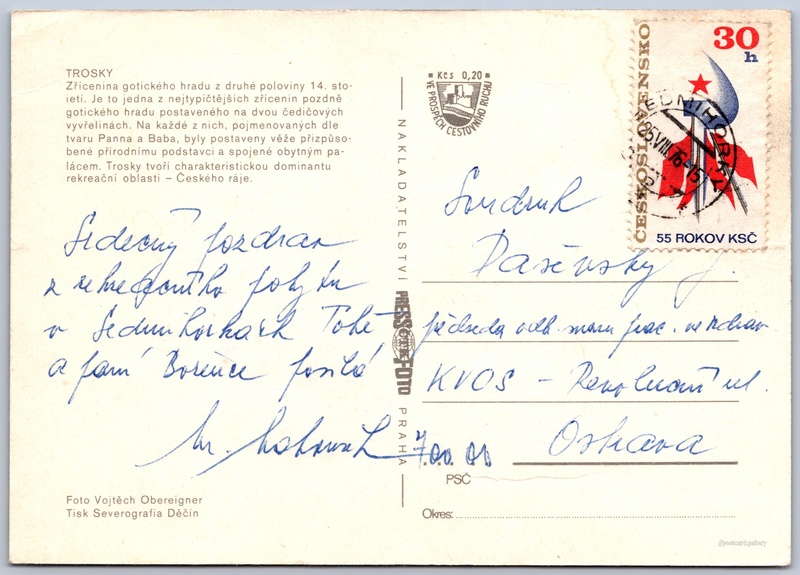 TROSKY
Zřícenina gotického hradu z druhé poloviny 14. sto-
letí. Je to jedna z nejtypičtějších zřícenin pozdně
gotického hradu postaveného na dvou čedičových
vyvřelinách. Na každé z nich, pojmenovaných dle
tvaru Panna a Baba, byly postaveny věže přizpůso-
bené přírodnímu podstavci a spojené obytným pa-
lácem. Trosky tvoří charakteristickou dominantu
rekreační oblasti – Českého ráje.
Srdečný pozdrav
z rekreačního pobytu
v Sedmihorkách Tobě
a paní Božence posílá
Foto Vojtěch Obereigner
Tisk Severografia Děčín
Kčs 0,20
VE PROSPĚCH CESTOVNÍHO RUCHU
NAKLADATELSTVÍ
PRESSFOTO
PRAHA
ČESKOSLOVENSKO
30
h
55 ROKOV KSČ
SEDMIHORKY
25.VIII.76-15
Soudruh
J.
předseda odb. svazu prac. ve zdrav.
KVOS - Revoluční ul.
Ostrava
700 00
PSČ
Okres:
postcard.gallery